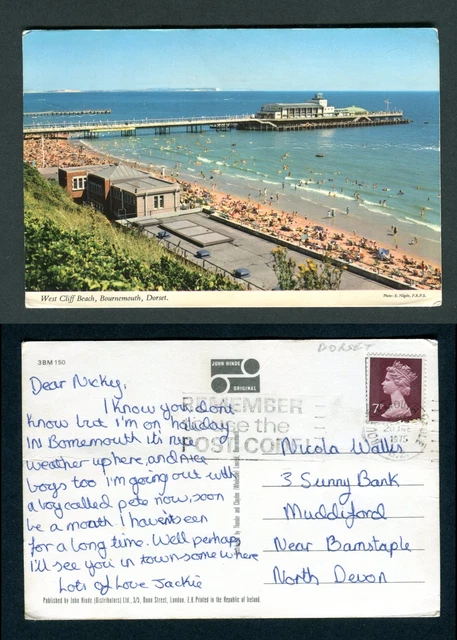 West Cliff Beach, Bournemouth, Dorset.
Photo: E. Nägele, F.R.P.S.
3BM 150
JOHN HINDE
ORIGINAL
DORSET
7P
1975
REMEMBER
use the
POST CODE
Dear Nicky,
I know you dont
know but I'm on holiday
IN Bornemouth its nice
weather up here, and nice
boys too I'm going out with
a boy called pete now, soon
be a month I havent seen
for a long time. Well perhaps
I'll see you in town some where
Lots of Love Jackie
Nicola Wallis
3 Sunny Bank
Muddiford
Near Barnstaple
North Devon
Published by John Hinde (Distributors) Ltd., 3/5, Dunn Street, London. E.8 Printed in the Republic of Ireland.